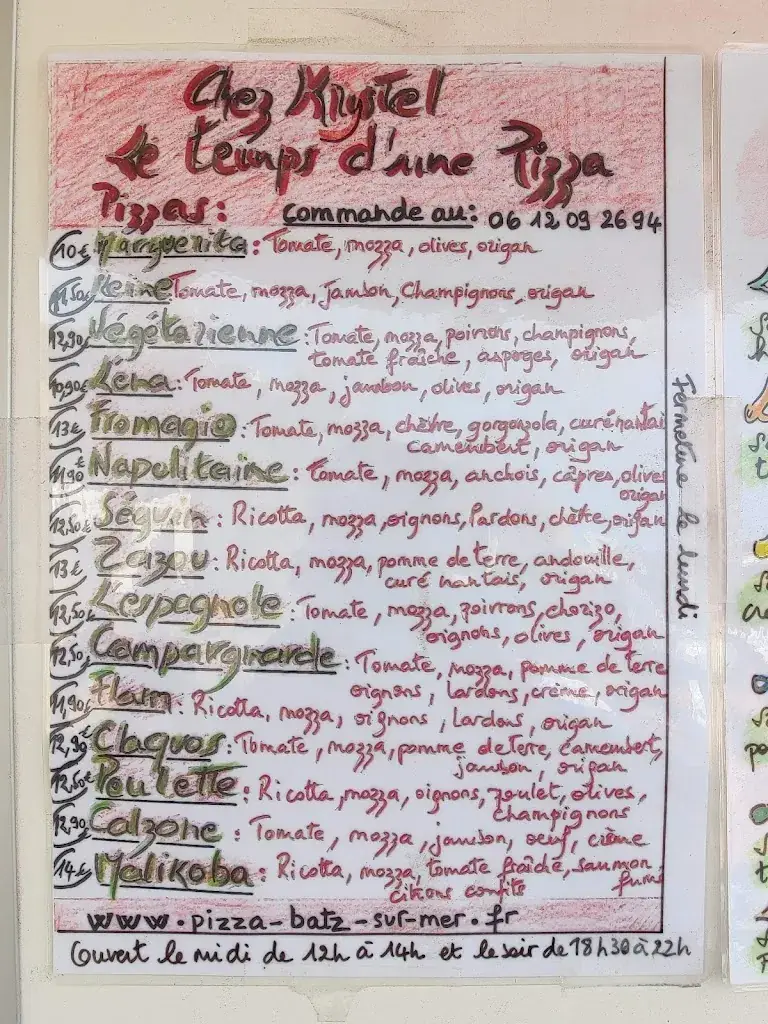 Chez Krystel
Le temps d'une Pizza
Pizzas : commande au : 06 12 09 26 94
10€ Margherita : Tomate, mozza, olives, origan
11,50€ Reine Tomate, mozza, Jambon, Champignons, origan
12,90 Végétarienne : Tomate, mozza, poivrons, champignons,
tomate fraîche, asperges, origan
10,90€ Léna : Tomate, mozza, jambon, olives, origan
13€ Fromagio : Tomate, mozza, chèvre, gorgonzola, curé nantais
camembert, origan
11,90€ Napolitaine : Tomate, mozza, anchois, câpres, olives
origan
12,50€ Séguin : Ricotta, mozza, oignons, lardons, chèvre, origan
13€ Zazou : Ricotta, mozza, pomme de terre, andouille,
curé nantais, origan
12,50€ L'espagnole : Tomate, mozza, poivrons, chorizo,
oignons, olives, origan
12,50 Campagnarde : Tomate, mozza, pomme de terre
oignons, lardons, crème, origan
11,90€ Flam : Ricotta, mozza, oignons, lardons, origan
12,90 Claquos : Tomate, mozza, pomme de terre, camembert,
jambon, origan
12,50€ Poulette : Ricotta, mozza, oignons, poulet, olives,
champignons
12,90 Calzone : Tomate, mozza, jambon, oeuf, crème
14€ Malikoba : Ricotta, mozza, tomate fraîche, saumon
fumé
citrons confits
www.pizza-batz-sur-mer.fr
Ouvert le midi de 12h à 14h et le soir de 18h30 à 22h
Fermeture le lundi